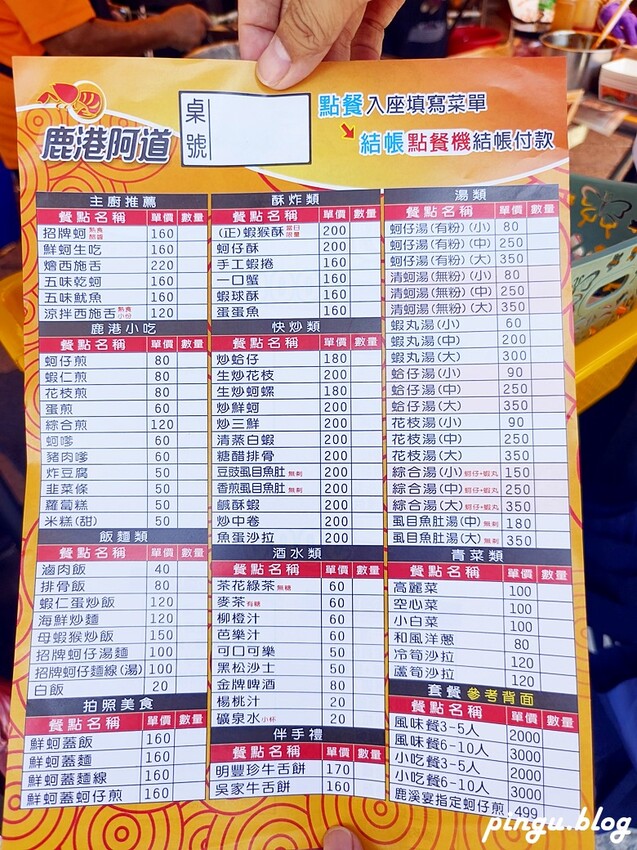 鹿港阿道
桌號
點餐 入座填寫菜單
結帳 點餐機結帳付款
主廚推薦
餐點名稱 單價 數量
招牌蚵 熱食 160
鮮蚵生吃 160
燴西施舌 220
五味乾蚵 160
五味魷魚 160
涼拌西施舌 120
鹿港小吃
餐點名稱 單價 數量
蚵仔煎 80
蝦仁煎 80
花枝煎 80
蛋煎 60
綜合煎 120
蚵嗲 60
豬肉嗲 60
炸豆腐 50
韭菜條 50
蘿蔔糕 50
米糕(甜) 50
飯麵類
餐點名稱 單價 數量
滷肉飯 40
排骨飯 80
蝦仁蛋炒飯 120
海鮮炒麵 120
母蝦猴炒飯 150
招牌蚵仔湯麵 100
招牌蚵仔麵線(湯) 100
白飯 20
拍照美食
餐點名稱 單價 數量
鮮蚵蓋飯 160
鮮蚵蓋麵 160
鮮蚵蓋麵線 160
鮮蚵蓋蚵仔煎 160
酥炸類
餐點名稱 單價 數量
(正)蝦猴酥 當日限量 200
蚵仔酥 200
手工蝦捲 160
一口蟹 160
蝦球酥 160
蛋蛋魚 160
快炒類
餐點名稱 單價 數量
炒蛤仔 180
生炒花枝 200
生炒蚵螺 180
炒鮮蚵 200
炒三鮮 200
清蒸白蝦 200
糖醋排骨 200
豆豉虱目魚肚 無刺 200
香煎虱目魚肚 無刺 200
鹹酥蝦 200
炒中卷 200
魚蛋沙拉 200
酒水類
餐點名稱 單價 數量
茶花綠茶 無糖 60
麥茶 有糖 60
柳橙汁 60
芭樂汁 60
可口可樂 50
黑松沙士 50
金牌啤酒 80
楊桃汁 20
礦泉水 小杯 20
伴手禮
餐點名稱 單價 數量
明豐珍牛舌餅 170
吳家牛舌餅 160
湯類
餐點名稱 單價 數量
蚵仔湯(有粉)(小) 80
蚵仔湯(有粉)(中) 250
蚵仔湯(有粉)(大) 350
清蚵湯(無粉)(小) 80
清蚵湯(無粉)(中) 250
清蚵湯(無粉)(大) 350
蝦丸湯(小) 60
蝦丸湯(中) 200
蝦丸湯(大) 300
蛤仔湯(小) 90
蛤仔湯(中) 250
蛤仔湯(大) 350
花枝湯(小) 90
花枝湯(中) 250
花枝湯(大) 350
綜合湯(小) 蚵仔+蝦丸 150
綜合湯(中) 蚵仔+蝦丸 250
綜合湯(大) 蚵仔+蝦丸 350
虱目魚肚湯(中) 無刺 180
虱目魚肚湯(大) 無刺 350
青菜類
餐點名稱 單價 數量
高麗菜 100
空心菜 100
小白菜 100
和風洋蔥 80
冷筍沙拉 120
蘆筍沙拉 120
套餐 參考背面
餐點名稱 單價 數量
風味餐3-5人 2000
風味餐6-10人 3000
小吃餐3-5人 2000
小吃餐6-10人 3000
鹿溪宴指定蚵仔煎 499
pingu.blog